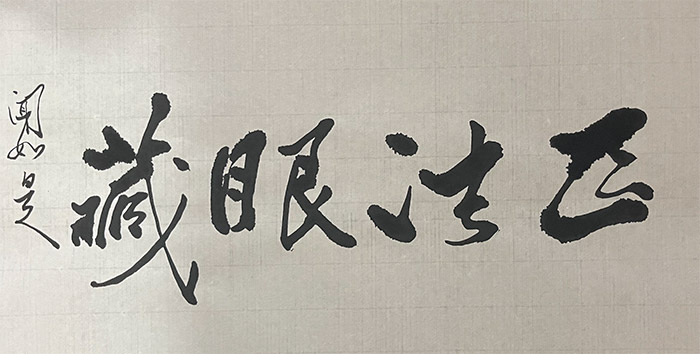 正法眼藏
闻如是